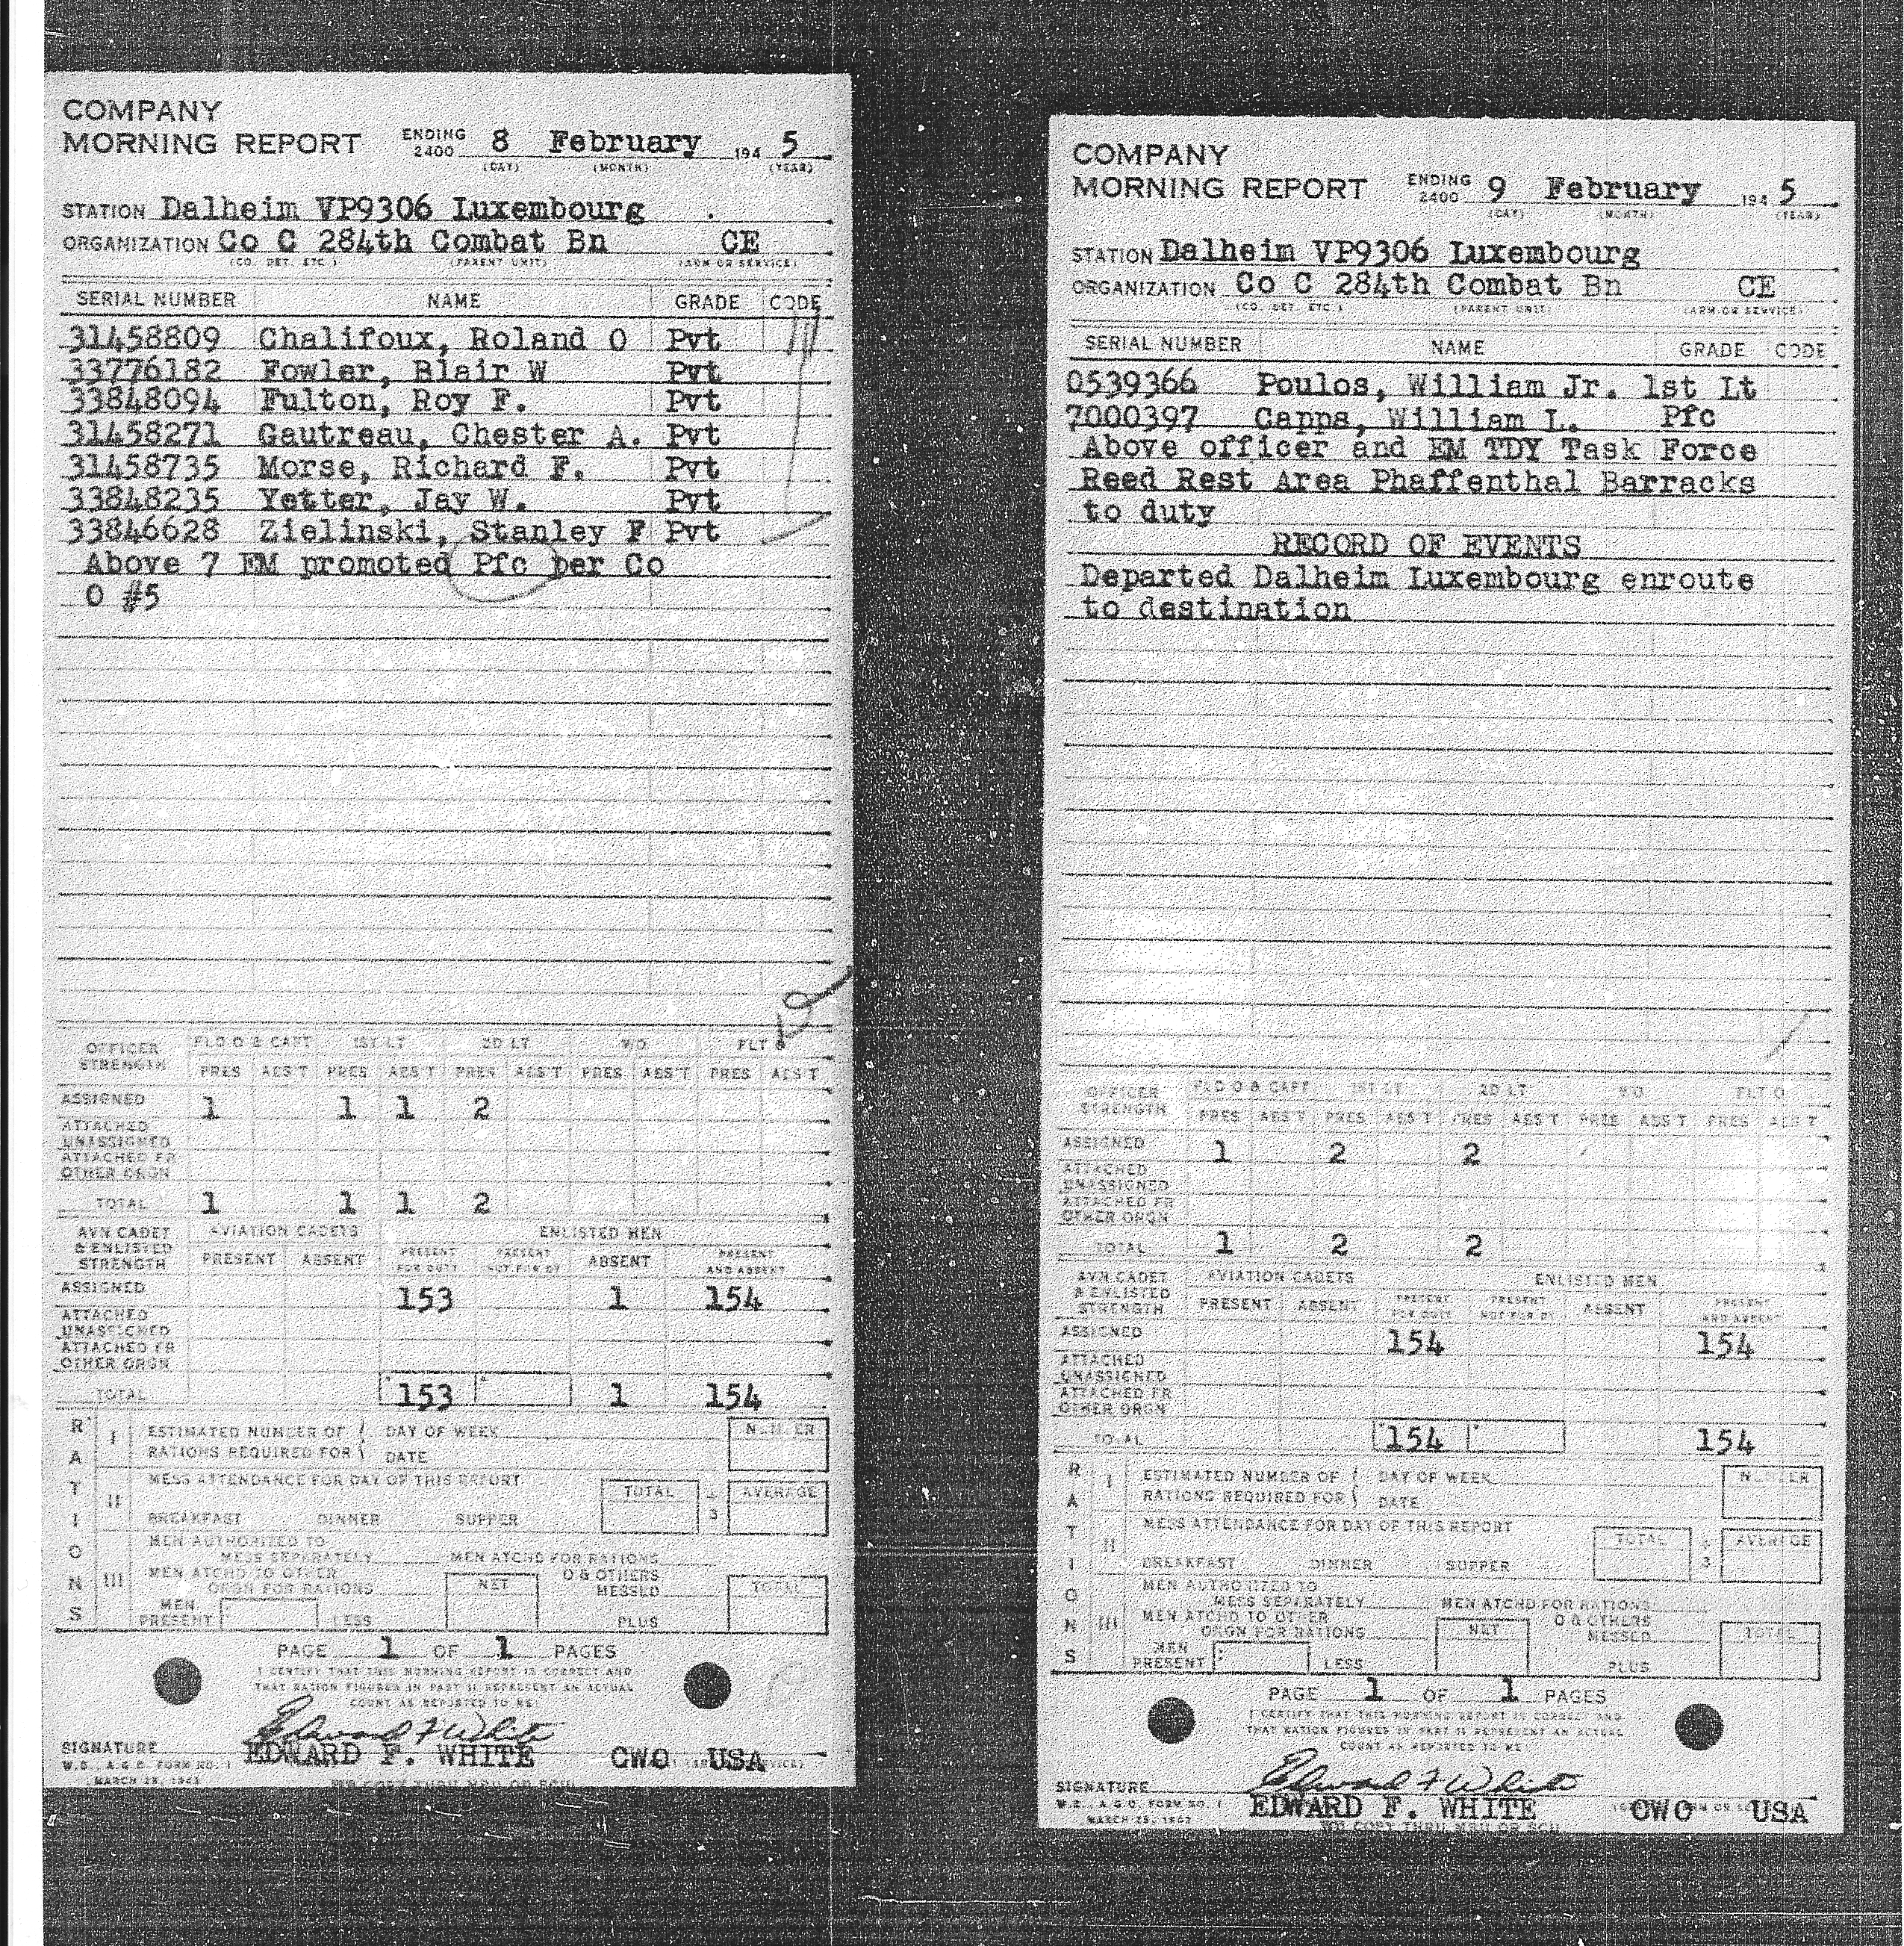 COMPANY
MORNING REPORT ENDING 2400 8 February 194 5
(DAY) (MONTH) (YEAR)
STATION Dalheim VP9306 Luxembourg
ORGANIZATION Co C 284th Combat Bn CE
(CO. DET. ETC.) (PARENT UNIT) (ARM OR SERVICE)
SERIAL NUMBER NAME GRADE CODE
31458809 Chalifoux, Roland O Pvt
33776182 Fowler, Blair W Pvt
33848094 Fulton, Roy F. Pvt
31458271 Gautreau, Chester A. Pvt
31458735 Morse, Richard F. Pvt
33848235 Yetter, Jay W. Pvt
33846628 Zielinski, Stanley F Pvt
Above 7 EM promoted Pfc per Co
O #5
OFFICER STRENGTH FLD O & CAPT 1ST LT 2D LT W O FLT O
PRES ABS'T PRES ABS'T PRES ABS'T PRES ABS'T PRES ABS'T
ASSIGNED 1 1 1 2
ATTACHED UNASSIGNED
ATTACHED FR OTHER ORGN
TOTAL 1 1 1 2
AVN CADET & ENLISTED STRENGTH AVIATION CADETS ENLISTED MEN
PRESENT ABSENT PRESENT FOR DUTY PRESENT NOT FOR DY ABSENT PRESENT AND ABSENT
ASSIGNED 153 1 154
ATTACHED UNASSIGNED
ATTACHED FR OTHER ORGN
TOTAL 153 1 154
RATIONS
I ESTIMATED NUMBER OF RATIONS REQUIRED FOR DAY OF WEEK DATE NUMBER
II MESS ATTENDANCE FOR DAY OF THIS REPORT TOTAL ÷ 3 AVERAGE
BREAKFAST DINNER SUPPER
III MEN AUTHORIZED TO MESS SEPARATELY MEN ATCHD FOR RATIONS
MEN ATCHD TO OTHER ORGN FOR RATIONS NET O & OTHERS MESSED TOTAL
MEN PRESENT LESS PLUS
PAGE 1 OF 1 PAGES
I CERTIFY THAT THIS MORNING REPORT IS CORRECT AND
THAT RATION FIGURES IN PART II REPRESENT AN ACTUAL
COUNT AS REPORTED TO ME
Edward F White
SIGNATURE EDWARD F. WHITE CWO USA
W.D., A.G.O. FORM NO. 1
MARCH 25, 1943
COMPANY
MORNING REPORT ENDING 2400 9 February 194 5
(DAY) (MONTH) (YEAR)
STATION Dalheim VP9306 Luxembourg
ORGANIZATION Co C 284th Combat Bn CE
(CO. DET. ETC.) (PARENT UNIT) (ARM OR SERVICE)
SERIAL NUMBER NAME GRADE CODE
0539366 Poulos, William Jr. 1st Lt
7000397 Capps, William L. Pfc
Above officer and EM TDY Task Force
Reed Rest Area Phaffenthal Barracks
to duty
RECORD OF EVENTS
Departed Dalheim Luxembourg enroute
to destination
OFFICER STRENGTH FLD O & CAPT 1ST LT 2D LT W O FLT O
PRES ABS'T PRES ABS'T PRES ABS'T PRES ABS'T PRES ABS'T
ASSIGNED 1 2 2
ATTACHED UNASSIGNED
ATTACHED FR OTHER ORGN
TOTAL 1 2 2
AVN CADET & ENLISTED STRENGTH AVIATION CADETS ENLISTED MEN
PRESENT ABSENT PRESENT FOR DUTY PRESENT NOT FOR DY ABSENT PRESENT AND ABSENT
ASSIGNED 154 154
ATTACHED UNASSIGNED
ATTACHED FR OTHER ORGN
TOTAL 154 154
RATIONS
I ESTIMATED NUMBER OF RATIONS REQUIRED FOR DAY OF WEEK DATE NUMBER
II MESS ATTENDANCE FOR DAY OF THIS REPORT TOTAL ÷ 3 AVERAGE
BREAKFAST DINNER SUPPER
III MEN AUTHORIZED TO MESS SEPARATELY MEN ATCHD FOR RATIONS
MEN ATCHD TO OTHER ORGN FOR RATIONS NET O & OTHERS MESSED TOTAL
MEN PRESENT LESS PLUS
PAGE 1 OF 1 PAGES
I CERTIFY THAT THIS MORNING REPORT IS CORRECT AND
THAT RATION FIGURES IN PART II REPRESENT AN ACTUAL
COUNT AS REPORTED TO ME
Edward F White
SIGNATURE EDWARD F. WHITE CWO USA
W.D., A.G.O. FORM NO. 1
MARCH 25, 1943